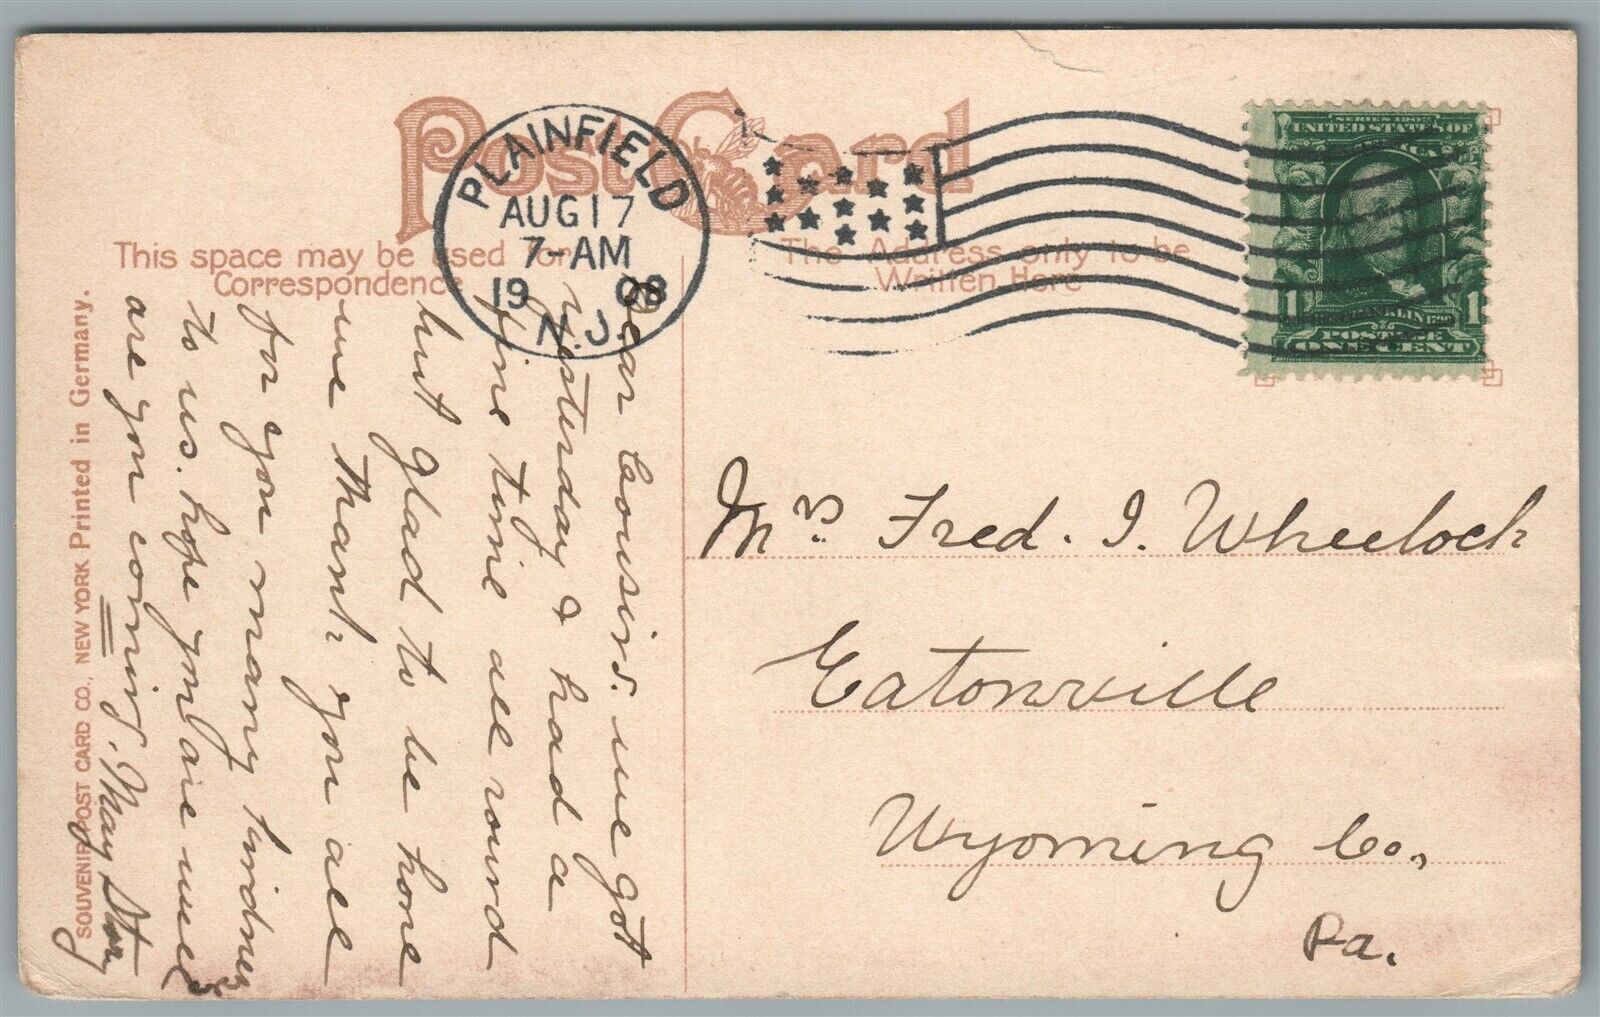 Post Card
This space may be used for
Correspondence
The Address only to be
Written Here
PLAINFIELD
AUG 17
7-AM
19 08
N.J.
SERIES 1902
UNITED STATES OF
AMERICA
1 FRANKLIN 1790 1
POSTAGE
ONE CENT
Dear Cousins. we got
yesterday & had a
fine time all round
but glad to be home
we thank you all
for you many kindness
to us. hope you are well
are you coming. May Story
Mrs Fred. I. Wheelock
Eatonville
Wyoming Co.,
Pa.
SOUVENIR POST CARD CO., NEW YORK Printed in Germany.